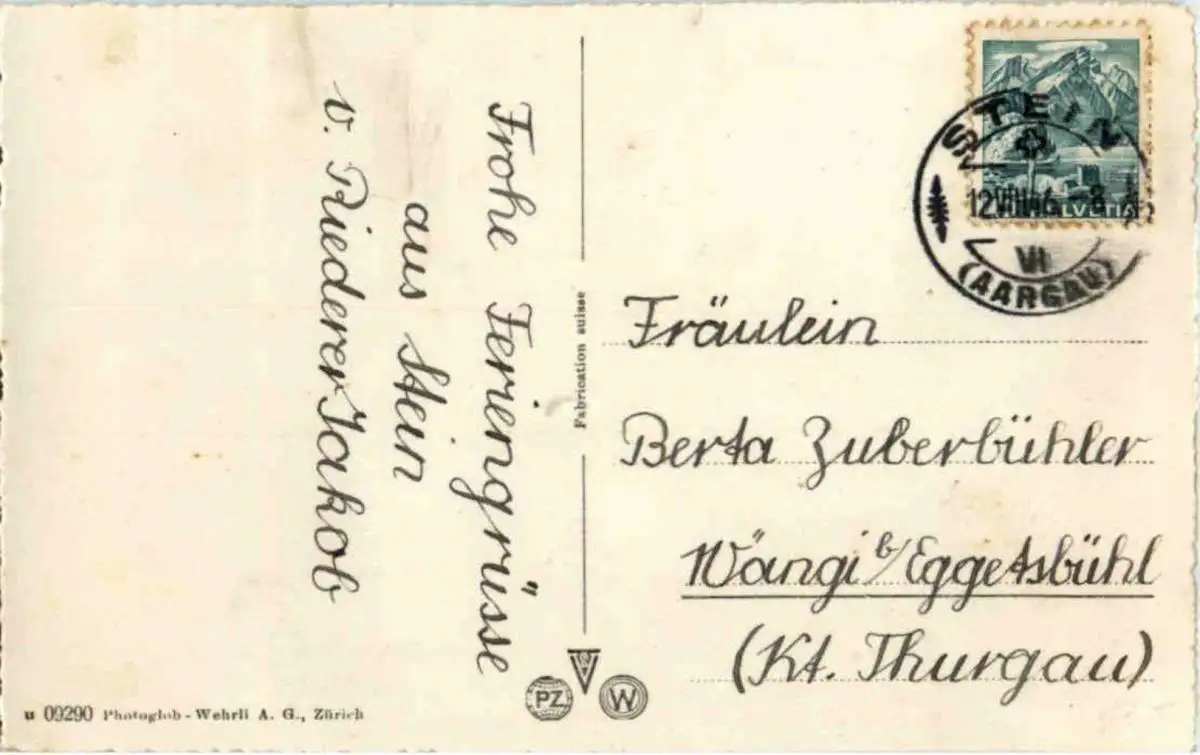 Frohe Feriengrüsse
aus Stein
v. Riederer Jakob
Fabrication suisse
STEIN
12.VIII.46. - 8
HELVETIA
VI
(AARGAU)
Fräulein
Berta Zuberbühler
Wängi b/Eggetsbühl
(Kt. Thurgau)
PZ
W
u 09290 Photoglob - Wehrli A. G., Zürich